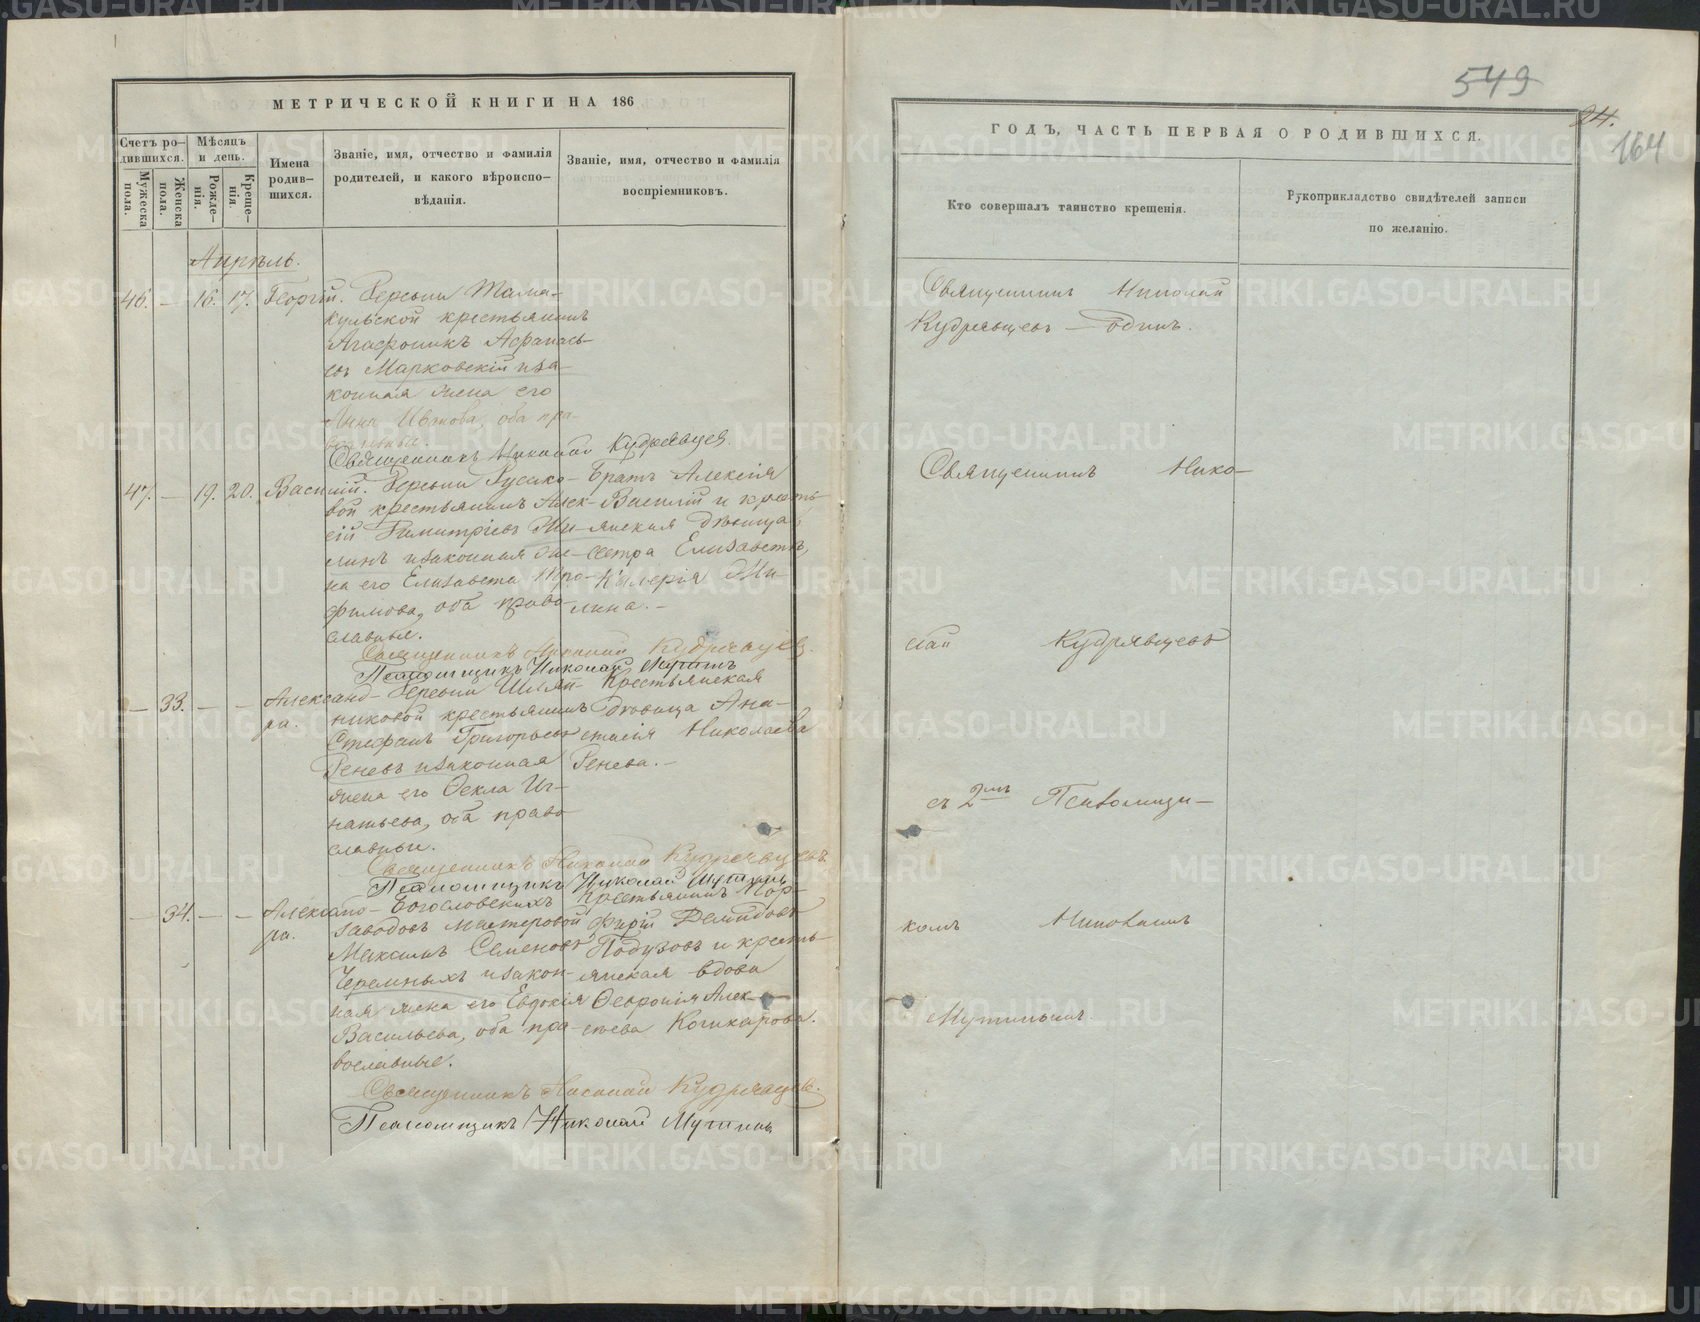 МЕТРИЧЕСКОЙ КНИГИ НА 186
Счетъ ро-
дившихся.
Мѣсяцъ
и день.
Мужеска
пола.
Женска
пола.
Рожде-
нія.
Креще-
нія.
Имена
родив-
шихся.
Званіе, имя, отчество и фамилія
родителей, и какого вѣроиспо-
вѣданія.
Званіе, имя, отчество и фамилія
воспріемниковъ.
Апрѣль.
46. — 16. 17. Георгій. Деревни Тама-
кульской крестьянинъ
Агафоникъ Афанась-
евъ Марковскій и за-
конная жена его
Анна Иванова, оба пра-
Священникъ Николай Кудрявцев.
47. — 19. 20. Василій. Деревни Русако-
вой крестьянинъ Алек-
сій Димитріевъ Ми-
линъ и законная же-
на его Елизавета Тро-
фимова, оба право-
славные.
Братъ Алексія
Василій и кресть-
янская дѣвица
сестра Елизаветы,
Валерія Ми-
лина. —
Священникъ Николай Кудрявцев.
Псаломщикъ Николай Мутинъ
— 33. — — Александ-
ра.
Деревни Шляп-
никовой крестьянинъ
Стефанъ Григорьевъ
Реневъ и законная
жена его Ѳекла Иг-
натьева, оба право-
славные.
Крестьянская
дѣвица Ана-
стасія Николаева
Ренева. —
Священникъ Николай Кудрявцевъ
Псаломщикъ Николай Мутинъ
— 34. — — Александ-
ра.
Богословскихъ
заводовъ мастеровой
Максимъ Семеновъ
Черемныхъ и закон-
ная жена его Евдокія
Васильева, оба пра-
вославные.
Крестьянинъ Пор-
фирій Демидовъ
Подузовъ и кресть-
янская вдова
Ѳевронія Алек-
сѣева Кочкарова.
Священникъ Николай Кудрявцев.
Псаломщикъ Николай Мутинъ
549
24.
164
ГОДЪ, ЧАСТЬ ПЕРВАЯ О РОДИВШИХСЯ.
Кто совершалъ таинство крещенія.
Рукоприкладство свидѣтелей записи
по желанію.
Священникъ Николай
Кудрявцевъ — одинъ.
Священникъ Нико-
лай Кудрявцевъ
съ 2мъ Псаломщи-
комъ Николаемъ
Мутинымъ.
METRIKI.GASO-URAL.RU